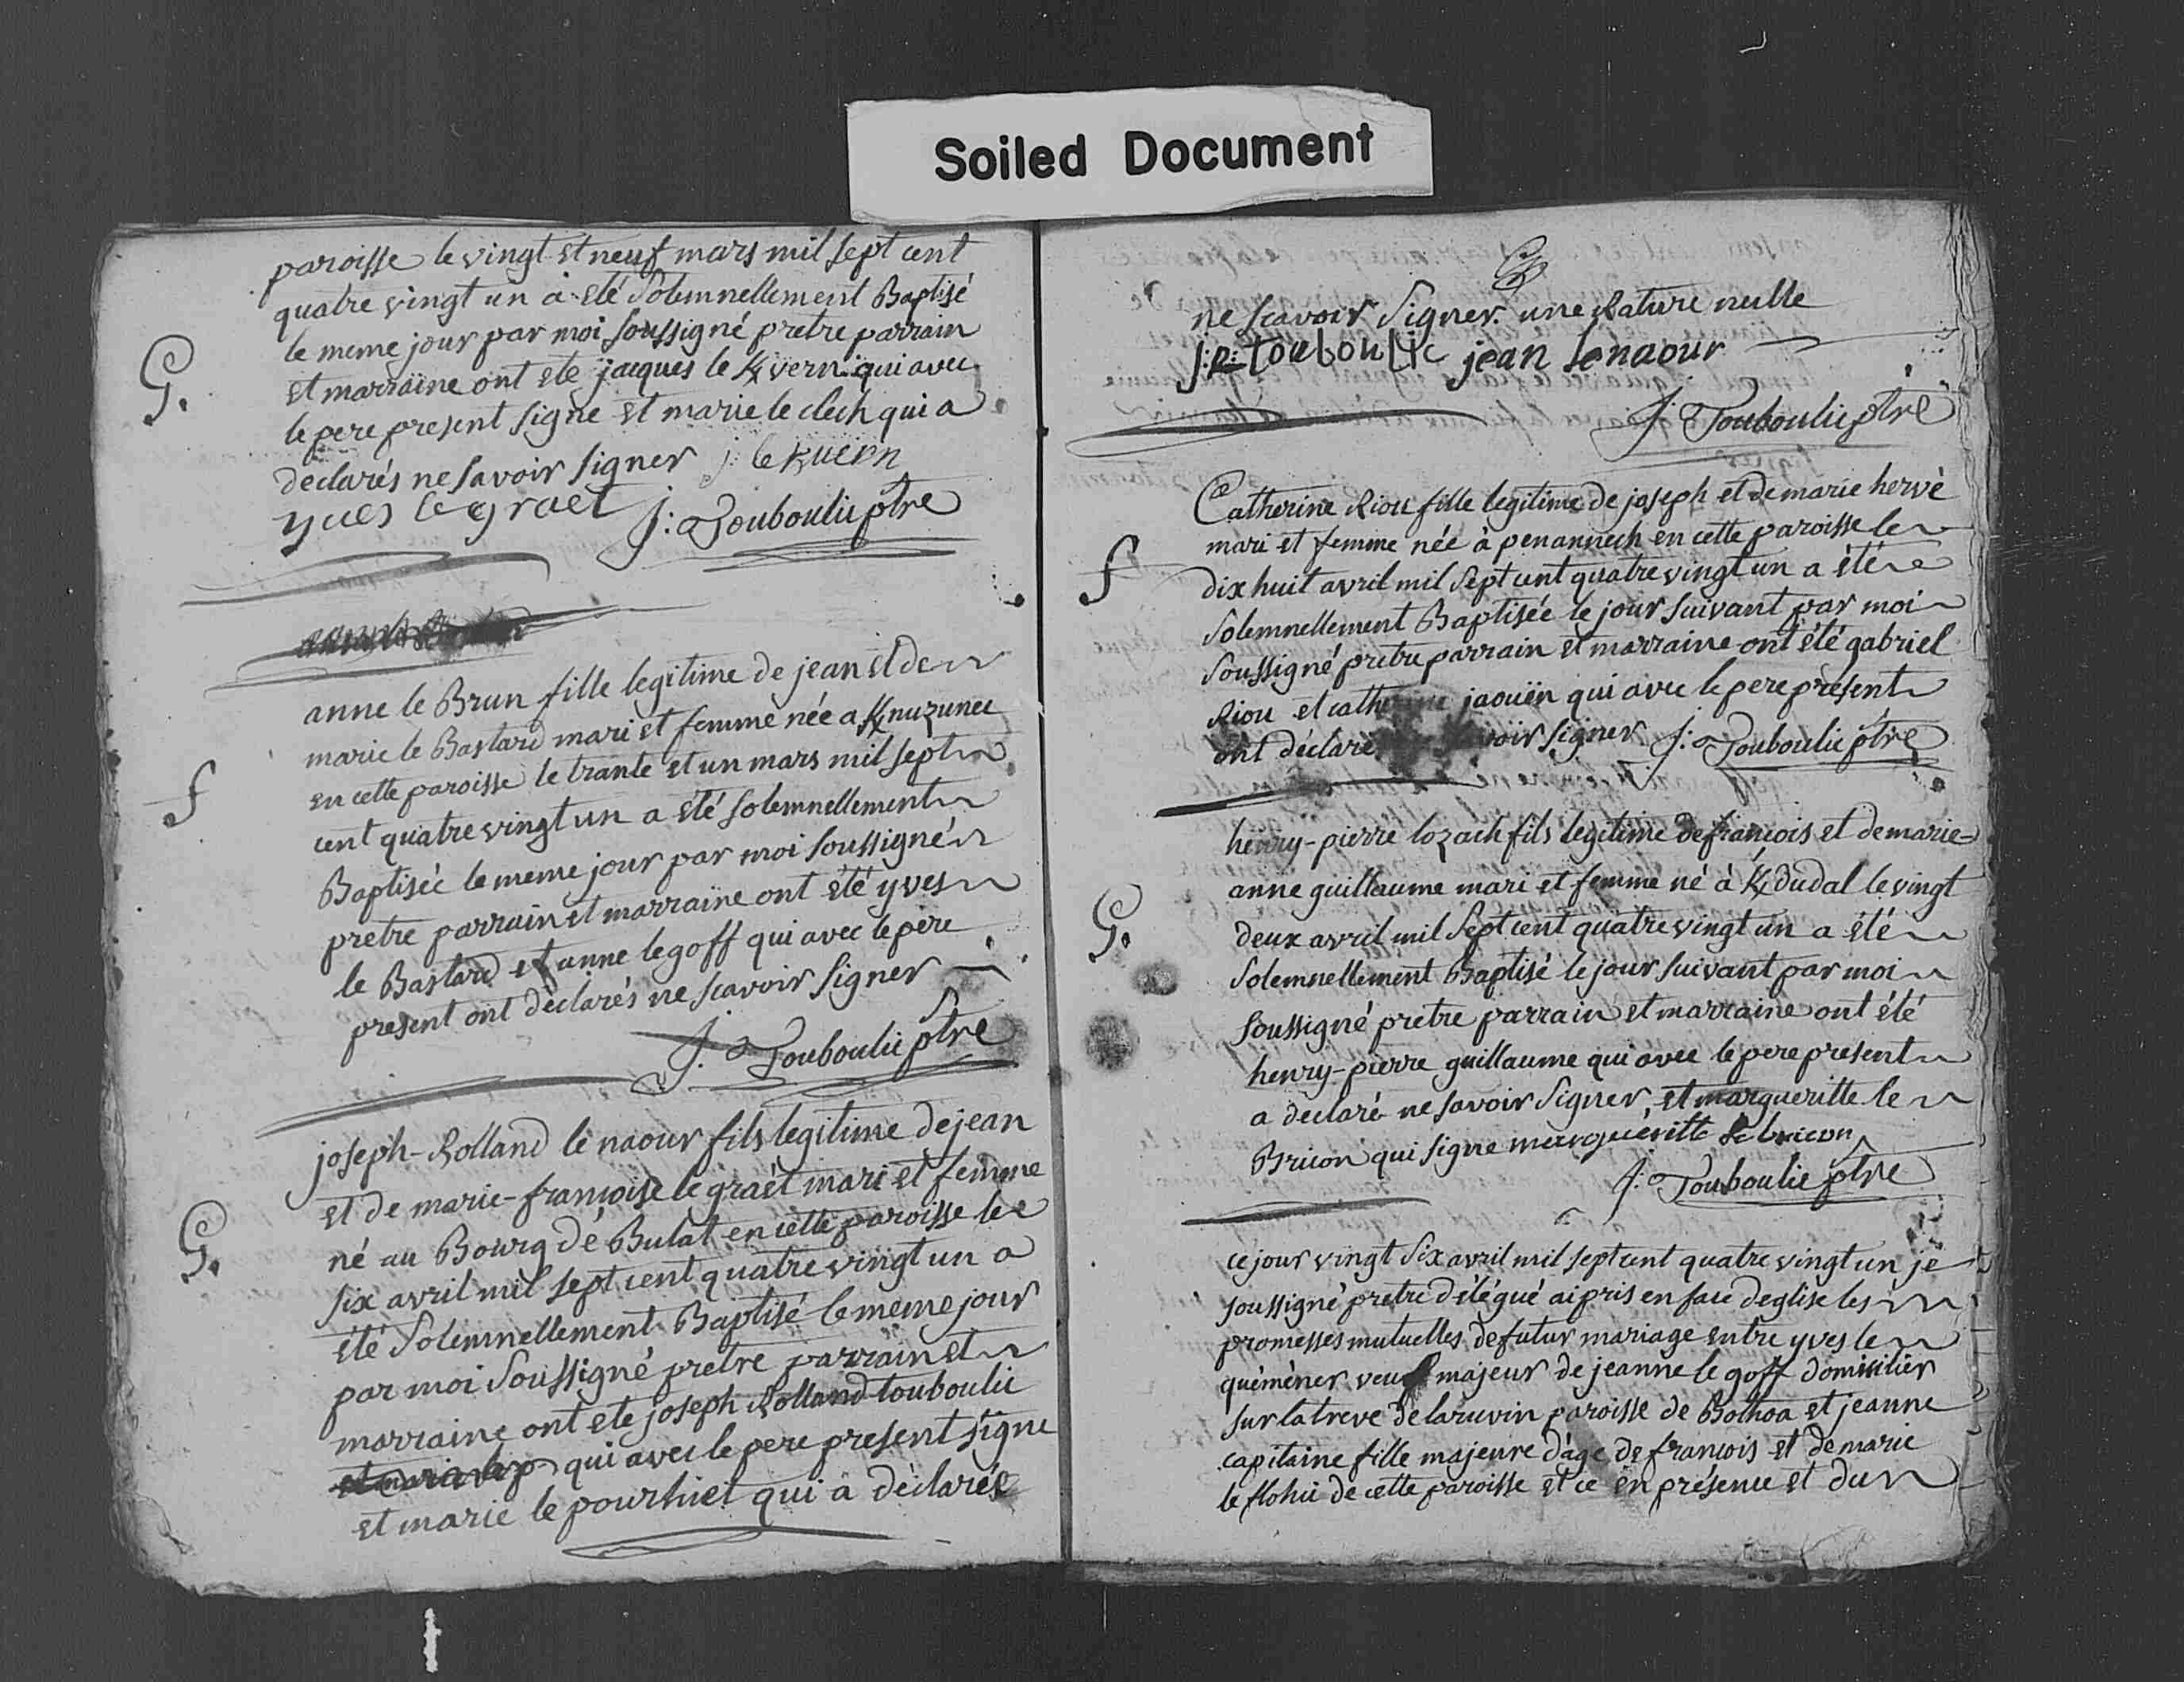 Soiled Document
paroisse le vingt et neuf mars mil sept cent
quatre vingt un a eté Solemnellement Baptisé
le meme jour par moi soussigné pretre parrain
G.
et marraine ont ete jacques le K/vern qui avec
le pere present signe et marie le clech qui a
declarés ne savoir signer j. le Kuern
yues le graet J: Touboulic ptre
anne le Brun fille legitime de jean et de
marie le Bastard mari et femme née a K/nuzunec
en cette paroisse le trante et un mars mil sept
f
cent quatre vingt un a été solemnellement
Baptisée le meme jour par moi soussigné
pretre parrain et marraine ont été yves
le Bastard et anne le goff qui avec le pere
present ont déclarés ne scavoir signer
J. Toubouлic ptre
joseph-Rolland le naour fils legitime de jean
et de marie-françoise le graët mari et femme
né au Bourg de Bulat en cette paroisse le
G.
six avril mil sept cent quatre vingt un a
été Solemnellement Baptisé le meme jour
par moi Soussigné pretre parrain et
marraine ont ete joseph Rolland toubouлic
qui avec le pere present signe
et marie le pourhiet qui a déclarés
ne scavoir Signer. une Rature nulle
j: R: toulboulic jean lenaour
J. Toubouлic ptre
Catherine Riou fille legitime de joseph et de marie hervé
mari et femme née à penannech en cette paroisse le
f
dix huit avril mil Sept cent quatre vingt un a été
Solemnellement Baptisée le jour suivant par moi
Soussigné pretre parrain et marraine ont été gabriel
Riou et catherine jaouën qui avec le pere présent
ont déclaré voir signer J: Toubouлic ptre
henry-pierre lozach fils legitime de francois et de marie-
anne guillaume mari et femme né à K/dudal le vingt
G.
deux avril mil Sept cent quatre vingt un a été
Solemnellement Baptisé le jour suivant par moi
soussigné pretre parrain et marraine ont été
henry-pierre guillaume qui avec le pere present
a declaré ne savoir Signer, et margueritte le
Bricon qui signe margueritte le bricon
J. Toubouлic ptre
ce jour vingt Six avril mil sept cent quatre vingt un je
soussigné pretre délégué ai pris en face deglise les
promesses mutuelles de futur mariage entre yves le
quéméner veuf majeur de jeanne le goff domicilier
sur la treve de laruvin paroisse de Bothoa et jeanne
capitaine fille majeure d'âge de francois et de marie
le flohic de cette paroisse et ce en présence et du